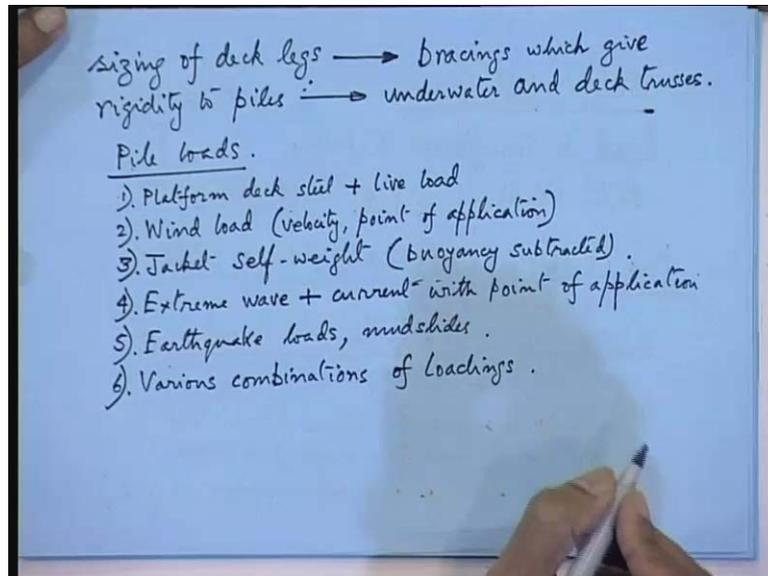 sizing of deck legs → bracings which give
rigidity to piles → underwater and deck trusses.
Pile loads.
1). Platform deck steel + live load
2). Wind load (velocity, point of application)
3). Jacket self-weight (buoyancy subtracted).
4). Extreme wave + current with point of application
5). Earthquake loads, mudslides.
6). Various combinations of loadings.